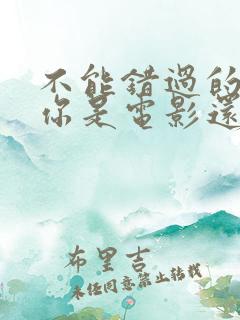 不能錯過的
你是電影還
布里吉
未经同意禁止转载